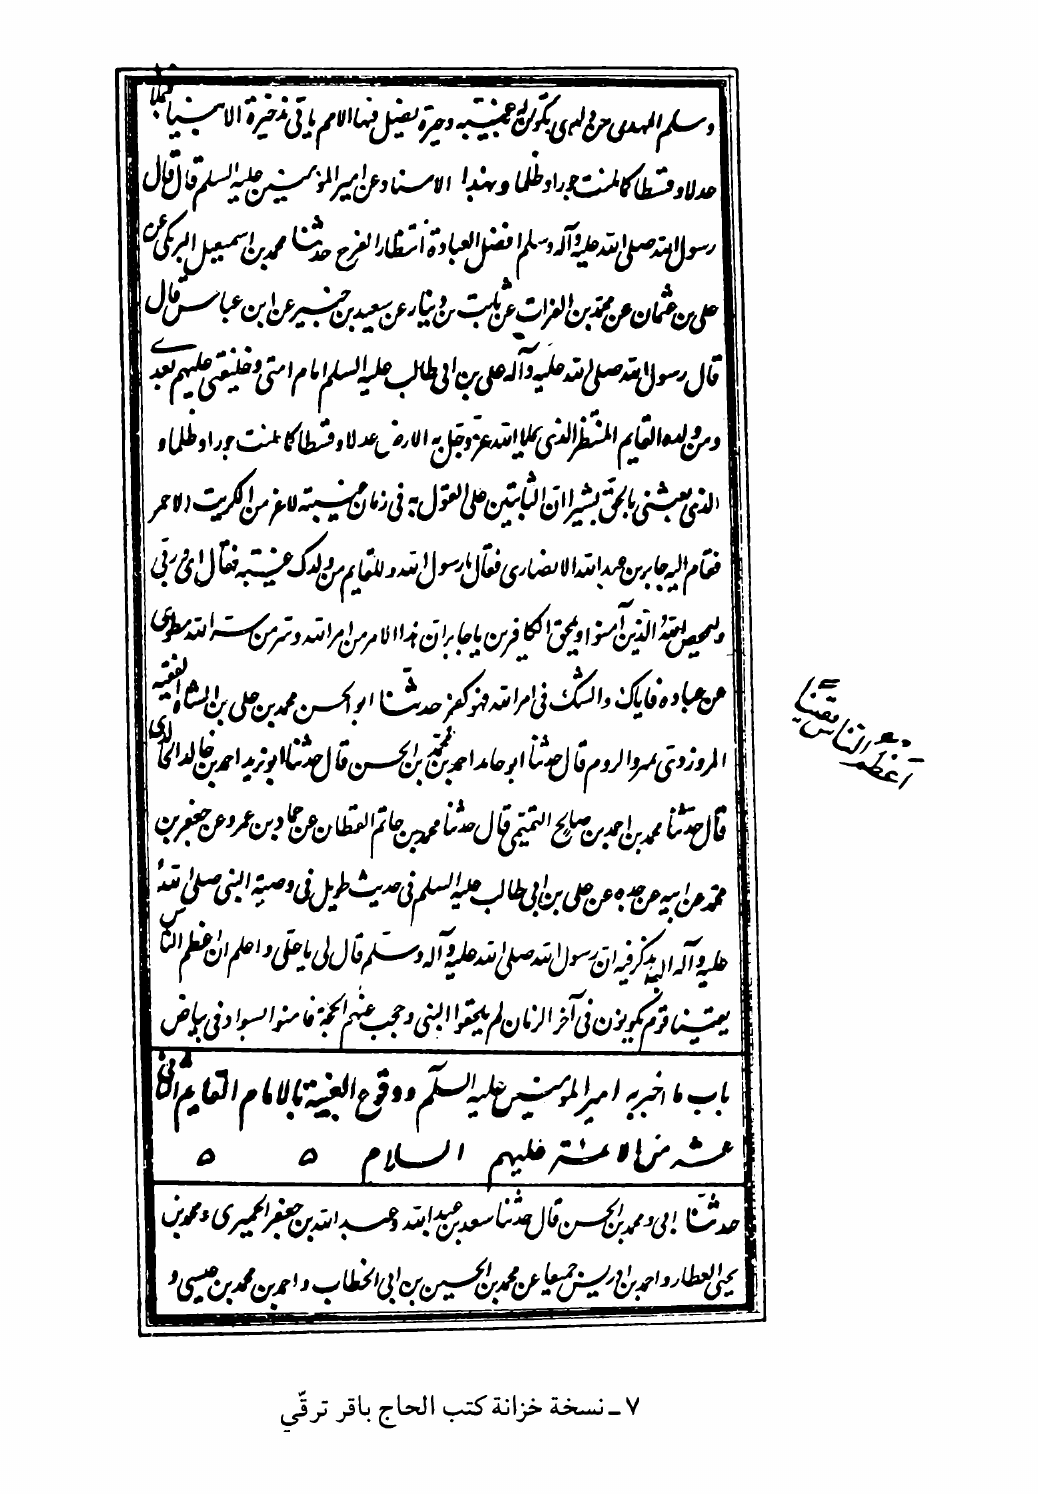 وسلم المهدى من ولدى يكون له غيبة وحيرة يضل فيها الامم ياتى بذخيرة الانبياء فيملاها
عدلا وقسطا كما ملئت جورا وظلما وبهذا الاسناد عن امير المؤمنين عليه السلم قال قال
رسول الله صلى الله عليه وآله وسلم افضل العبادة انتظار الفرج حدثنا محمد بن اسمعيل البرمكى عن
على بن عثمان عن محمد بن الفرات عن ثابت بن دينار عن سعيد بن جبير عن ابن عباس قال
قال رسول الله صلى الله عليه وآله على بن ابى طالب عليه السلم امام امتى وخليفتى عليهم بعدى
ومن ولده القايم المنتظر الذى يملا الله عز وجل به الارض عدلا وقسطا كما ملئت جورا وظلما و
الذى بعثنى بالحق بشيرا ان الثابتين على القول به فى زمان غيبته لاعز من الكبريت الاحمر
فقام اليه جابر بن عبد الله الانصارى فقال يا رسول الله وللقايم من ولدك غيبة فقال اى وربى
وليمحص الله الذين آمنوا ويمحق الكافرين يا جابر ان هذا الامر من امر الله وسر من سر الله مطوى
عن عباده فاياك والشك فى امر الله فهو كفر حدثنا ابو الحسن محمد بن على بن الشاه الفقيه
المروزوذى بمرو الروم قال حدثنا ابو حامد احمد بن محمد بن الحسن قال حدثنا ابو يزيد احمد بن خالد الخالدى
قال حدثنا محمد بن احمد بن صالح التميمى قال حدثنا محمد بن حاتم القطان عن حماد بن عمرو عن جعفر بن
محمد عن ابيه عن جده عن على بن ابى طالب عليه السلم فى حديث طويل فى وصية النبى صلى الله
عليه وآله يذكر فيه ان رسول الله صلى الله عليه وآله وسلم قال لى يا على واعلم ان اعظم الناس
يقينا قوم يكونون فى آخر الزمان لم يلحقوا النبى وحجب عنهم الحجة فامنوا بسواد فى بياض
باب ما اخبر به امير المؤمنين عليه السلم ووقوع الغيبة بالامام القايم الثانى
عشر من الائمة عليهم السلام ٥ ٥
حدثنا ابى ومحمد بن الحسن قال حدثنا سعد بن عبد الله وعبد الله بن جعفر الحميرى ومحمد بن
يحيى العطار واحمد بن ادريس جميعا عن محمد بن الحسين بن ابى الخطاب واحمد بن محمد بن عيسى و
اعظم الناس يقينا
٧ ـ نسخة خزانة كتب الحاج باقر ترقّي